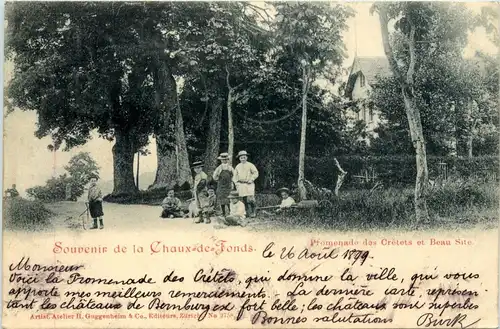 Souvenir de la Chaux-de-Fonds.
Promenade des Crêtets et Beau Site.
le 26 Août 1899.
Monsieur
Voici la Promenade des Crêtets, qui domine la ville, qui vous
apporte mes meilleurs remerciements. La dernière carte, représen-
tant les châteaux de Homburg est fort belle; les châteaux sont superbes
Bonnes salutations
Artist. Atelier H. Guggenheim & Co., Editeurs, Zürich, No. 3756.